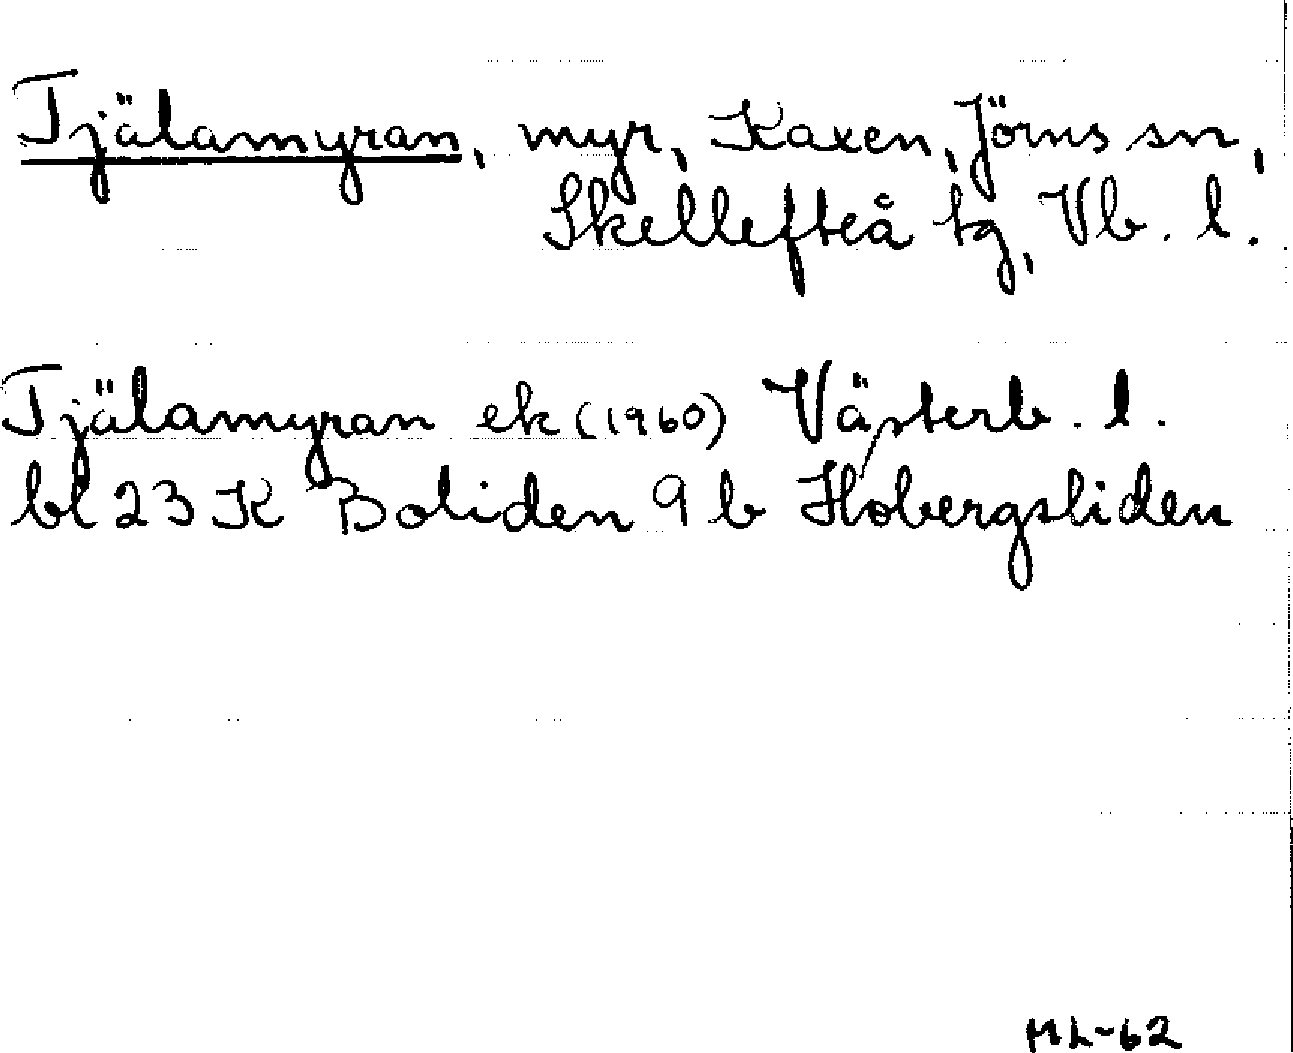 Tjälamyran, myr, Kaxen, Jörns sn,
Skellefteå tg, Vb. l.
Tjälamyran ek (1960) Västerb. l.
bl 23 K Boliden 9 b Hobergsliden
ML-62